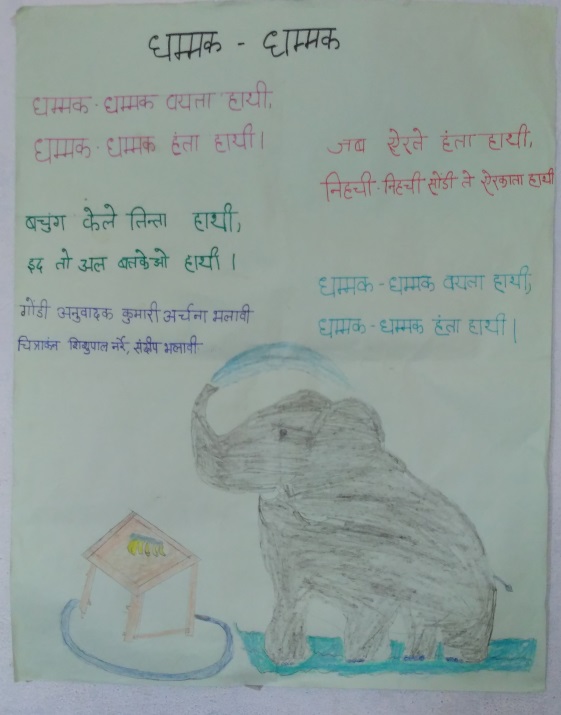 धम्मक - धम्मक
धम्मक - धम्मक वयता हाथी,
धम्मक - धम्मक हंता हाथी।
बचुंग केले तिन्ता हाथी,
इद तो अल बतकेओ हाथी।
गोंडी अनुवादक कुमारी अर्चना भलावी
चित्रांकन शिशुपाल नर्रे, संदीप भलावी
जब ऐरते हंता हाथी,
निहची-निहची सोंडी ते ऐरकाता हाथी
धम्मक - धम्मक वयता हाथी,
धम्मक - धम्मक हंता हाथी।